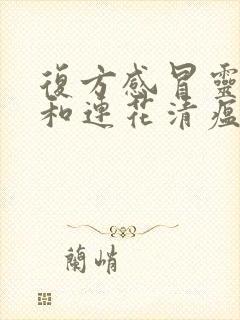 復方感冒靈
和連花清瘟
蘭峭